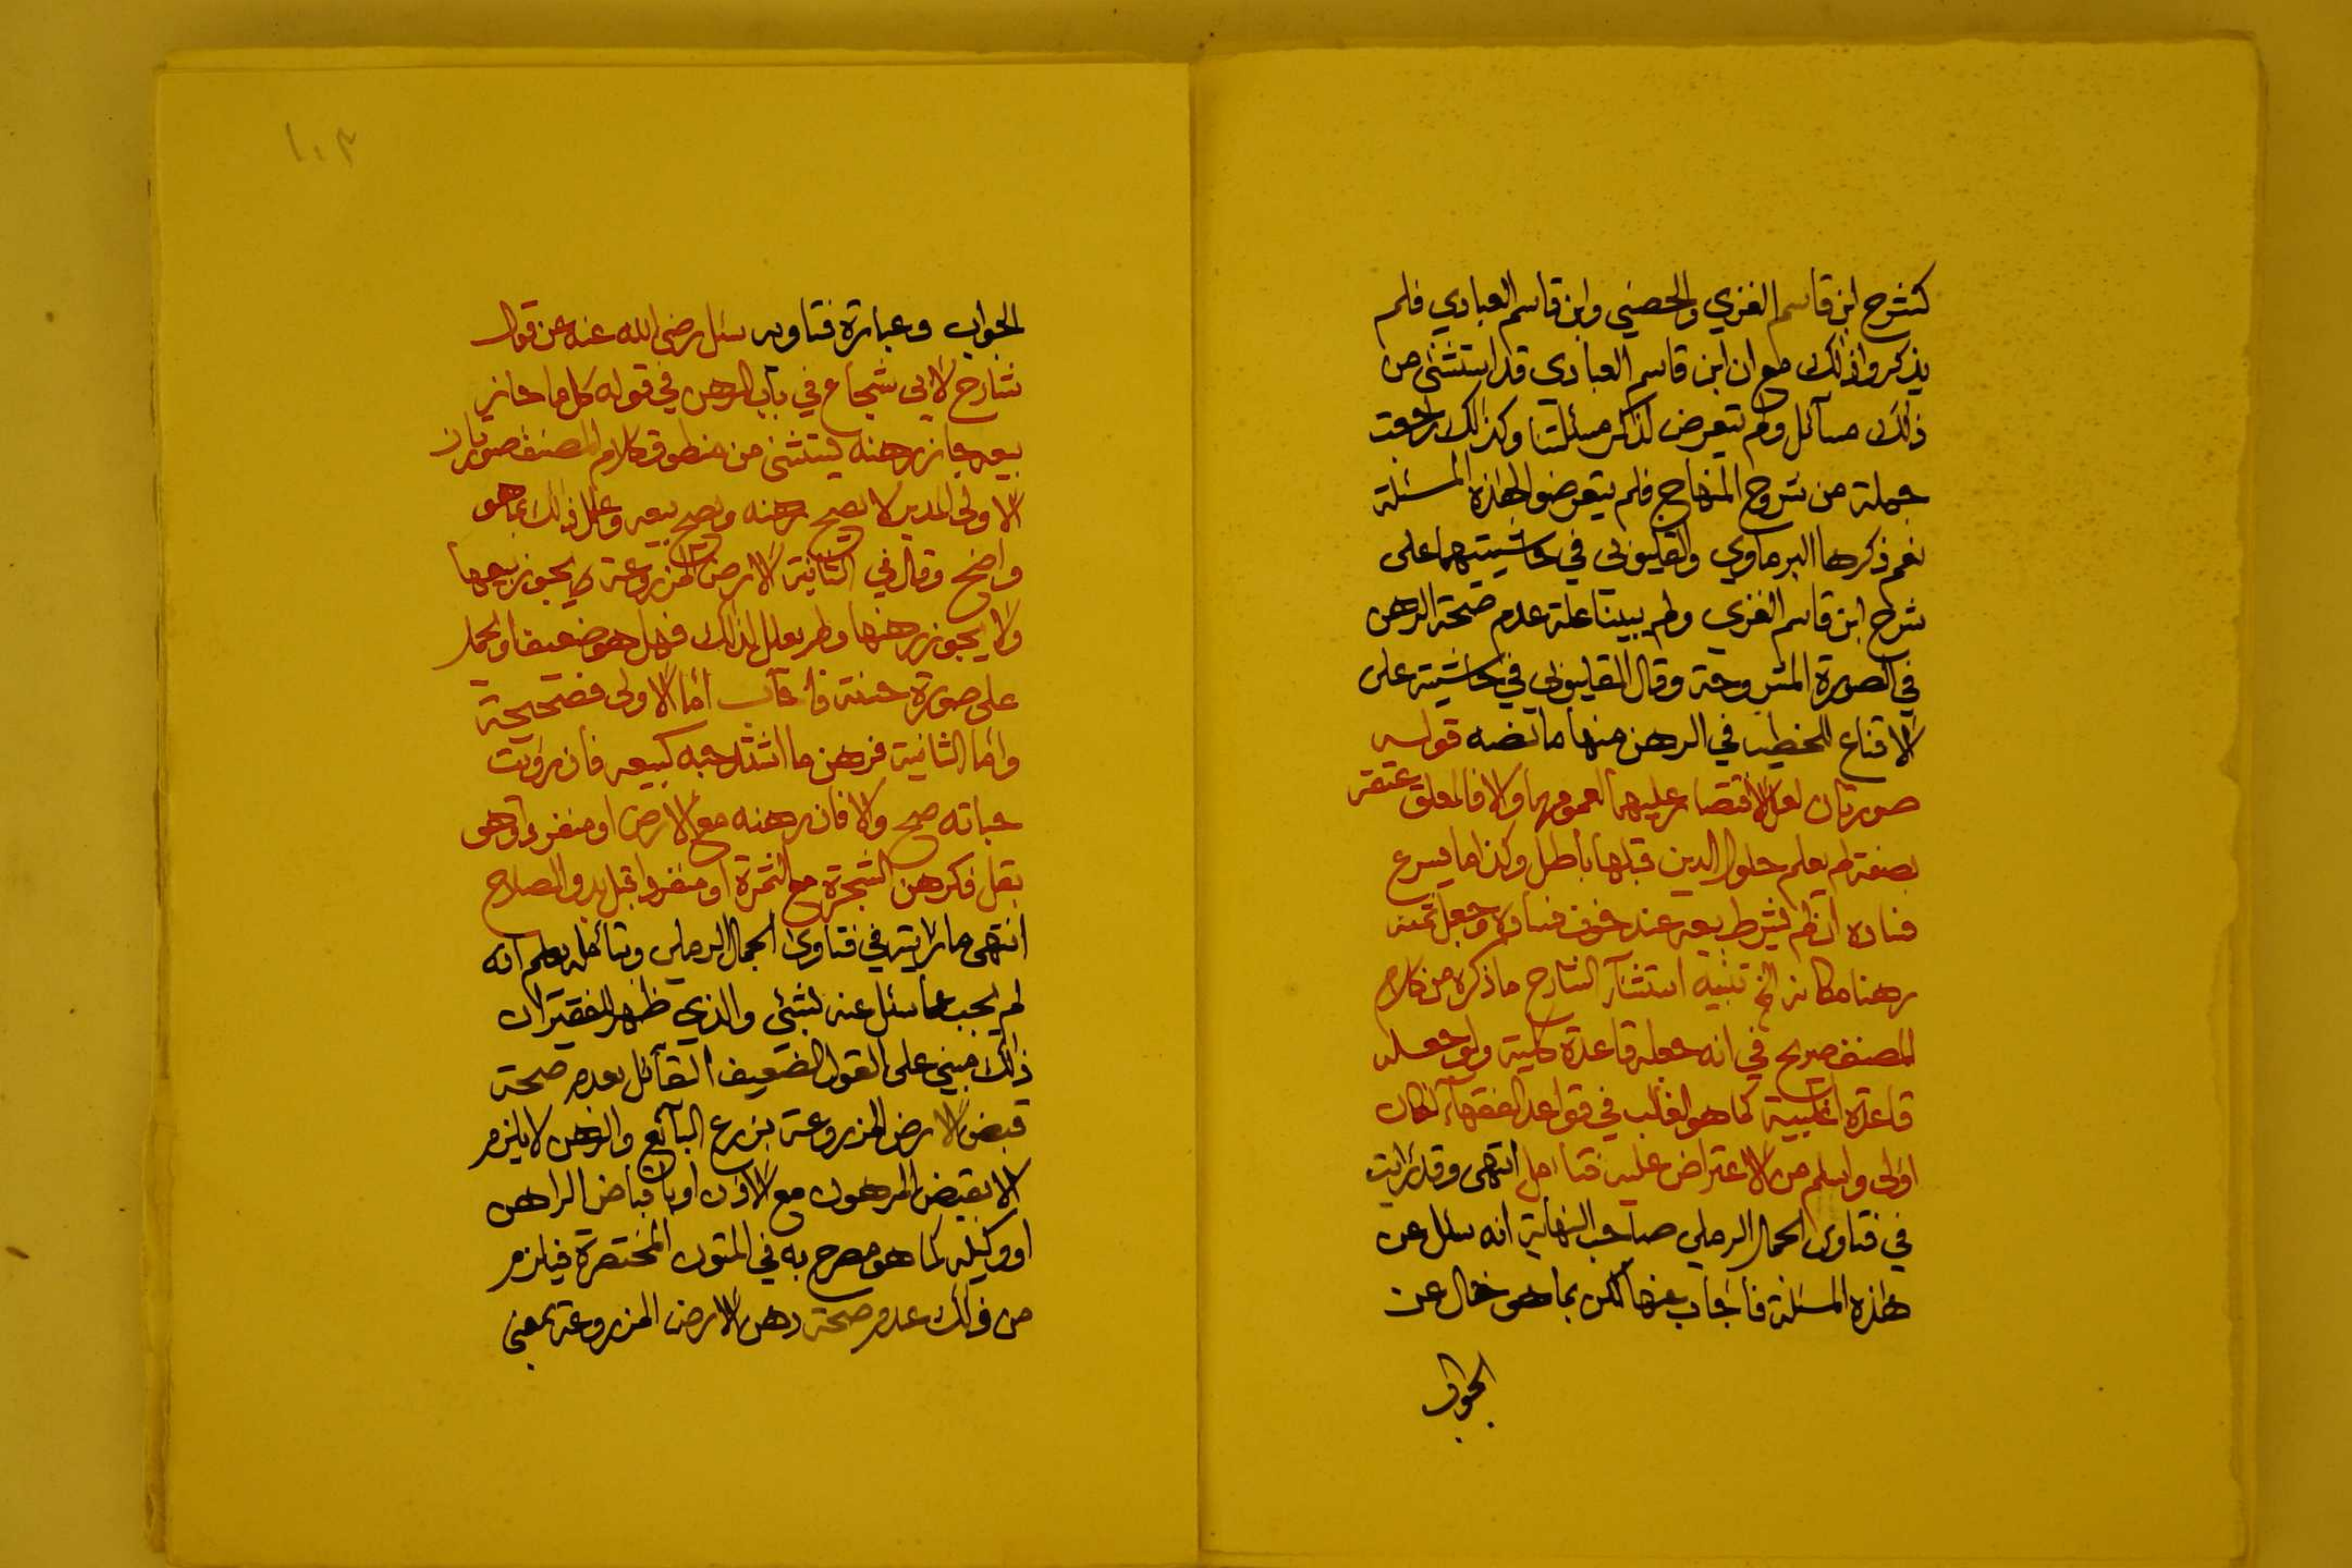 كشرح ابن قاسم الغزي والحصني وابن قاسم العبادي فلم
يذكروا ذلك مع ان ابن قاسم العبادي قد استثنى من
ذلك مسآئل ولم يتعرض لذكر مسئلتنا وكذلك راجعت
جملة من شروح المنهاج فلم يتعرضوا لهذه المسئلة
نعم ذكرها البرماوي والقليوبي في حاشيتيهما على
شرح ابن قاسم الغزي ولم يبينا علة عدم صحة الرهن
في الصورة المشروحة وقال القليوبي في حاشيته على
الاقناع للخطيب في الرهن منها ما نصه قوله
صورتان لعل الاقتصار عليهما لعمومهما والا فالمعلق عتقه
بصفة لم يعلم حلول الدين قبلها باطل وكذا ما يسرع
فساده ان لم يشرط بيعه عند خوف فساده وجعل ثمنه
رهنا مكانه الخ تنبيه استثنآء الشارح ما ذكره من كلام
المصنف صريح في انه جعله قاعدة كلية ولو جعله
قاعدة اغلبية كما هو الغالب في قواعد الفقهآء لكان
اولى واسلم من الاعتراض عليه فتامل انتهى وقد رايت
في فتاوى الجمال الرملي صاحب النهاية انه سئل عن
هذه المسئلة فاجاب عنها لكن بما هو خال عن
الجواب
١٠٣
الجواب وعبارة فتاويه سئل رضي الله عنه عن قول
شارح لابى شجاع في باب الرهن في قوله كل ما جاز
بيعه جاز رهنه يستثنى من منطوق كلام المصنف صورتان
الاولى المدبر لا يصح رهنه ويصح بيعه وعلل ذلك بما هو
واضح وقال في الثانية الارض المزروعة يجوز بيعها
ولا يجوز رهنها ولم يعلل لذلك فهل هو ضعيف او يحمل
على صورة حسنة فاجاب اما الاولى فصحيحة
واما الثانية فرهن ما اشتد حبه كبيعه فان رؤيت
حباته صح والا فان رهنه مع الارض او منفردا وهو
بقل فكرهن الشجرة مع الثمرة او منفردا قبل بدو الصلاح
انتهى ما رايته في فتاوى الجمال الرملي وبتأمله يعلم انه
لم يجب عما سئل عنه بشيئ والذي ظهر للفقير ان
ذلك مبني على القول الضعيف القآئل بعدم صحة
قبض الارض المزروعة بزرع البآئع والرهن لا يلزم
الا بقبض المرهون مع الاذن او باقباض الراهن
او وكيله كما هو مصرح به في المتون المختصرة فيلزم
من ذلك عدم صحة رهن الارض المزروعة بمعنى